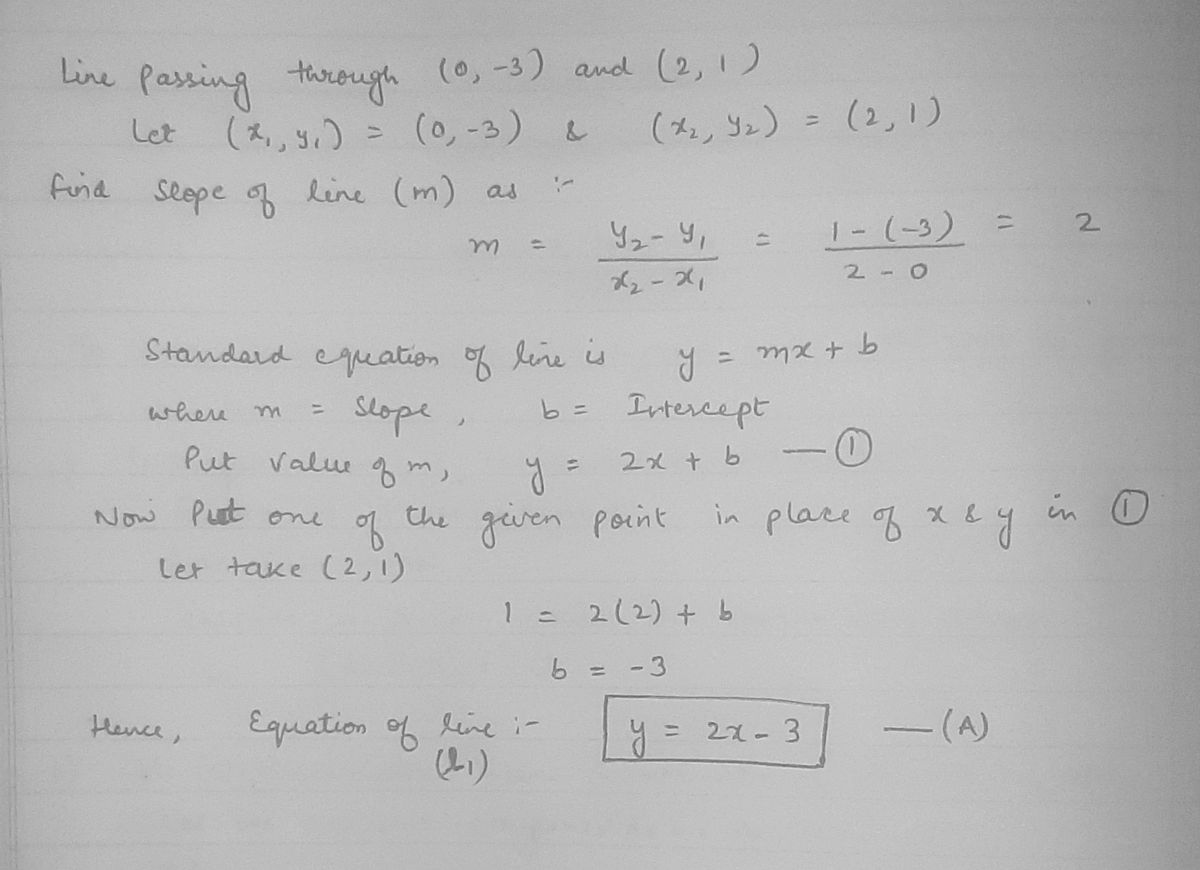 Line passing through (0, -3) and (2, 1)
Let (x₁, y₁) = (0, -3) & (x₂, y₂) = (2, 1)
find slope of line (m) as :-
m = (y₂ - y₁)/(x₂ - x₁) = (1 - (-3))/(2 - 0) = 2
Standard equation of line is y = mx + b
where m = Slope, b = Intercept
Put value of m, y = 2x + b — ①
Now Put one of the given point in place of x & y in ①
Let take (2,1)
1 = 2(2) + b
b = -3
Hence, Equation of line :- y = 2x - 3 — (A)
(L₁)